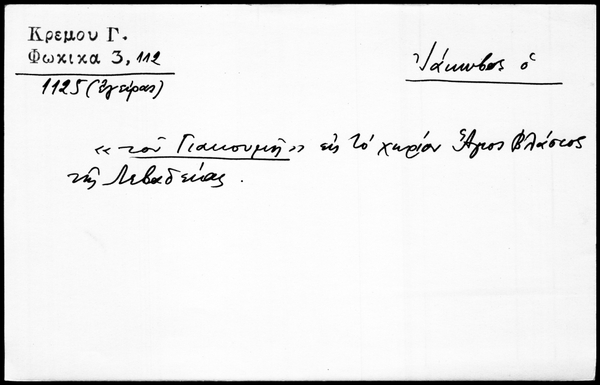 Κρεμου Γ.
Φωκικα 3, 112
1125 (Ἐγείρας)
Ἰάκωβος ὁ
«τοῦ Γιακουμῆ» εἰς τὸ χωρίον Ἅγιος Βλάσιος
τῆς Λεβαδείας.